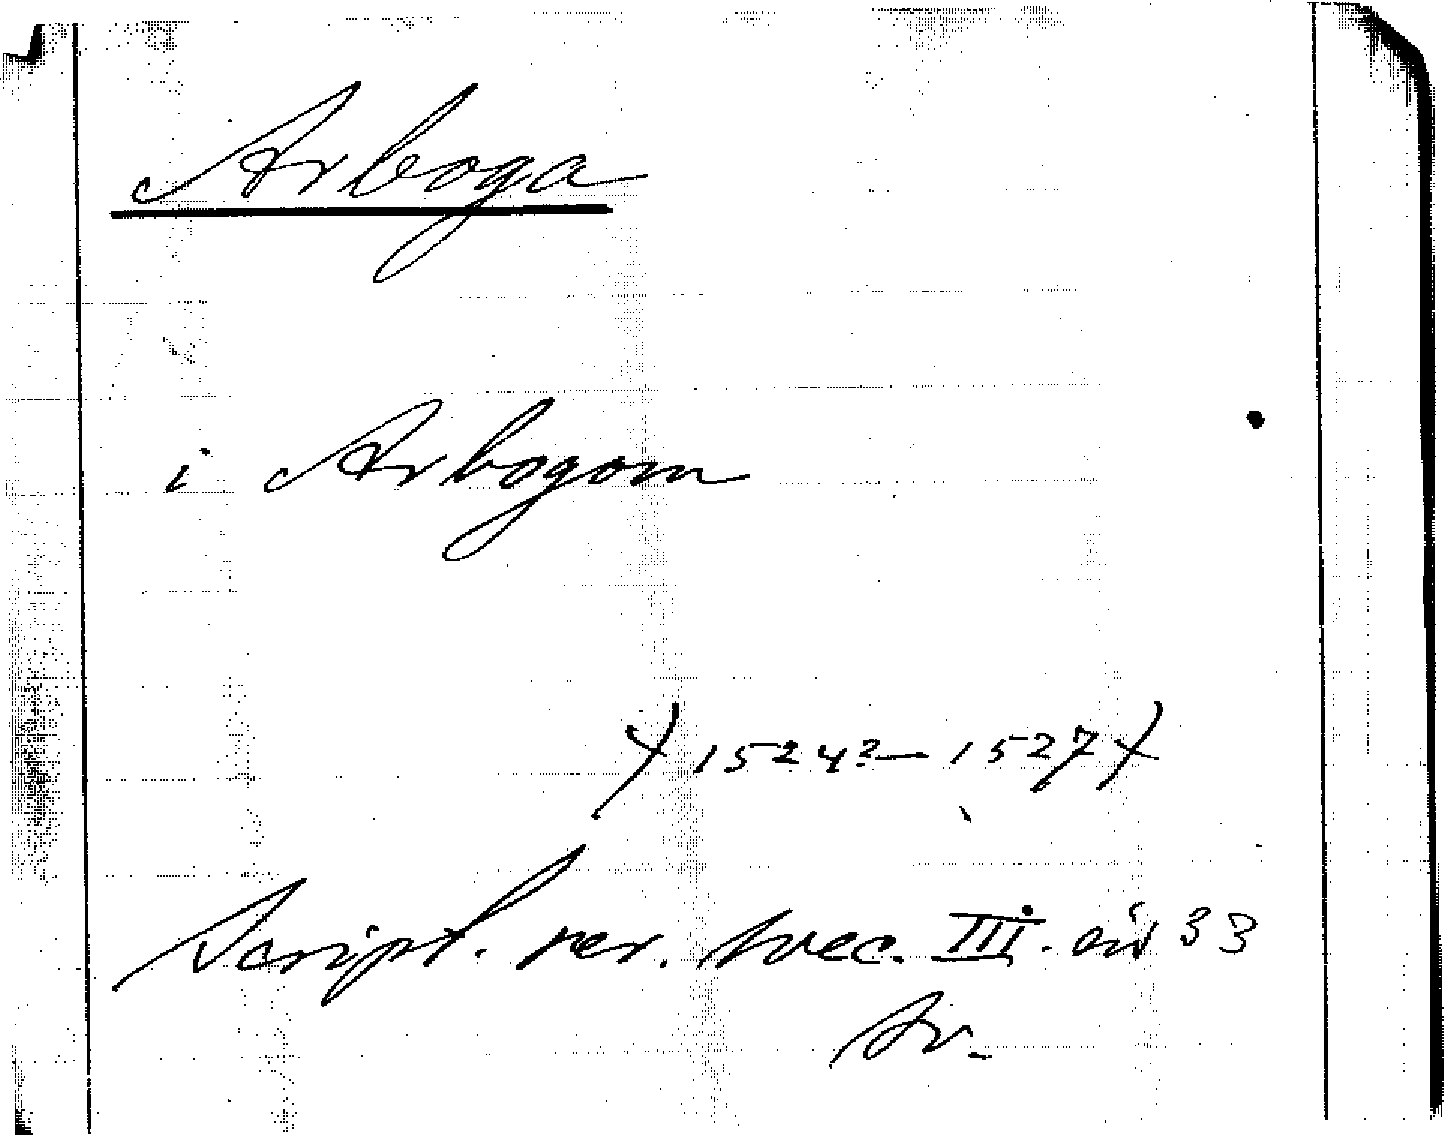 Arboga
i Arbogom
(1524?-1527)
Script. rer. svec. III. 33
sv.